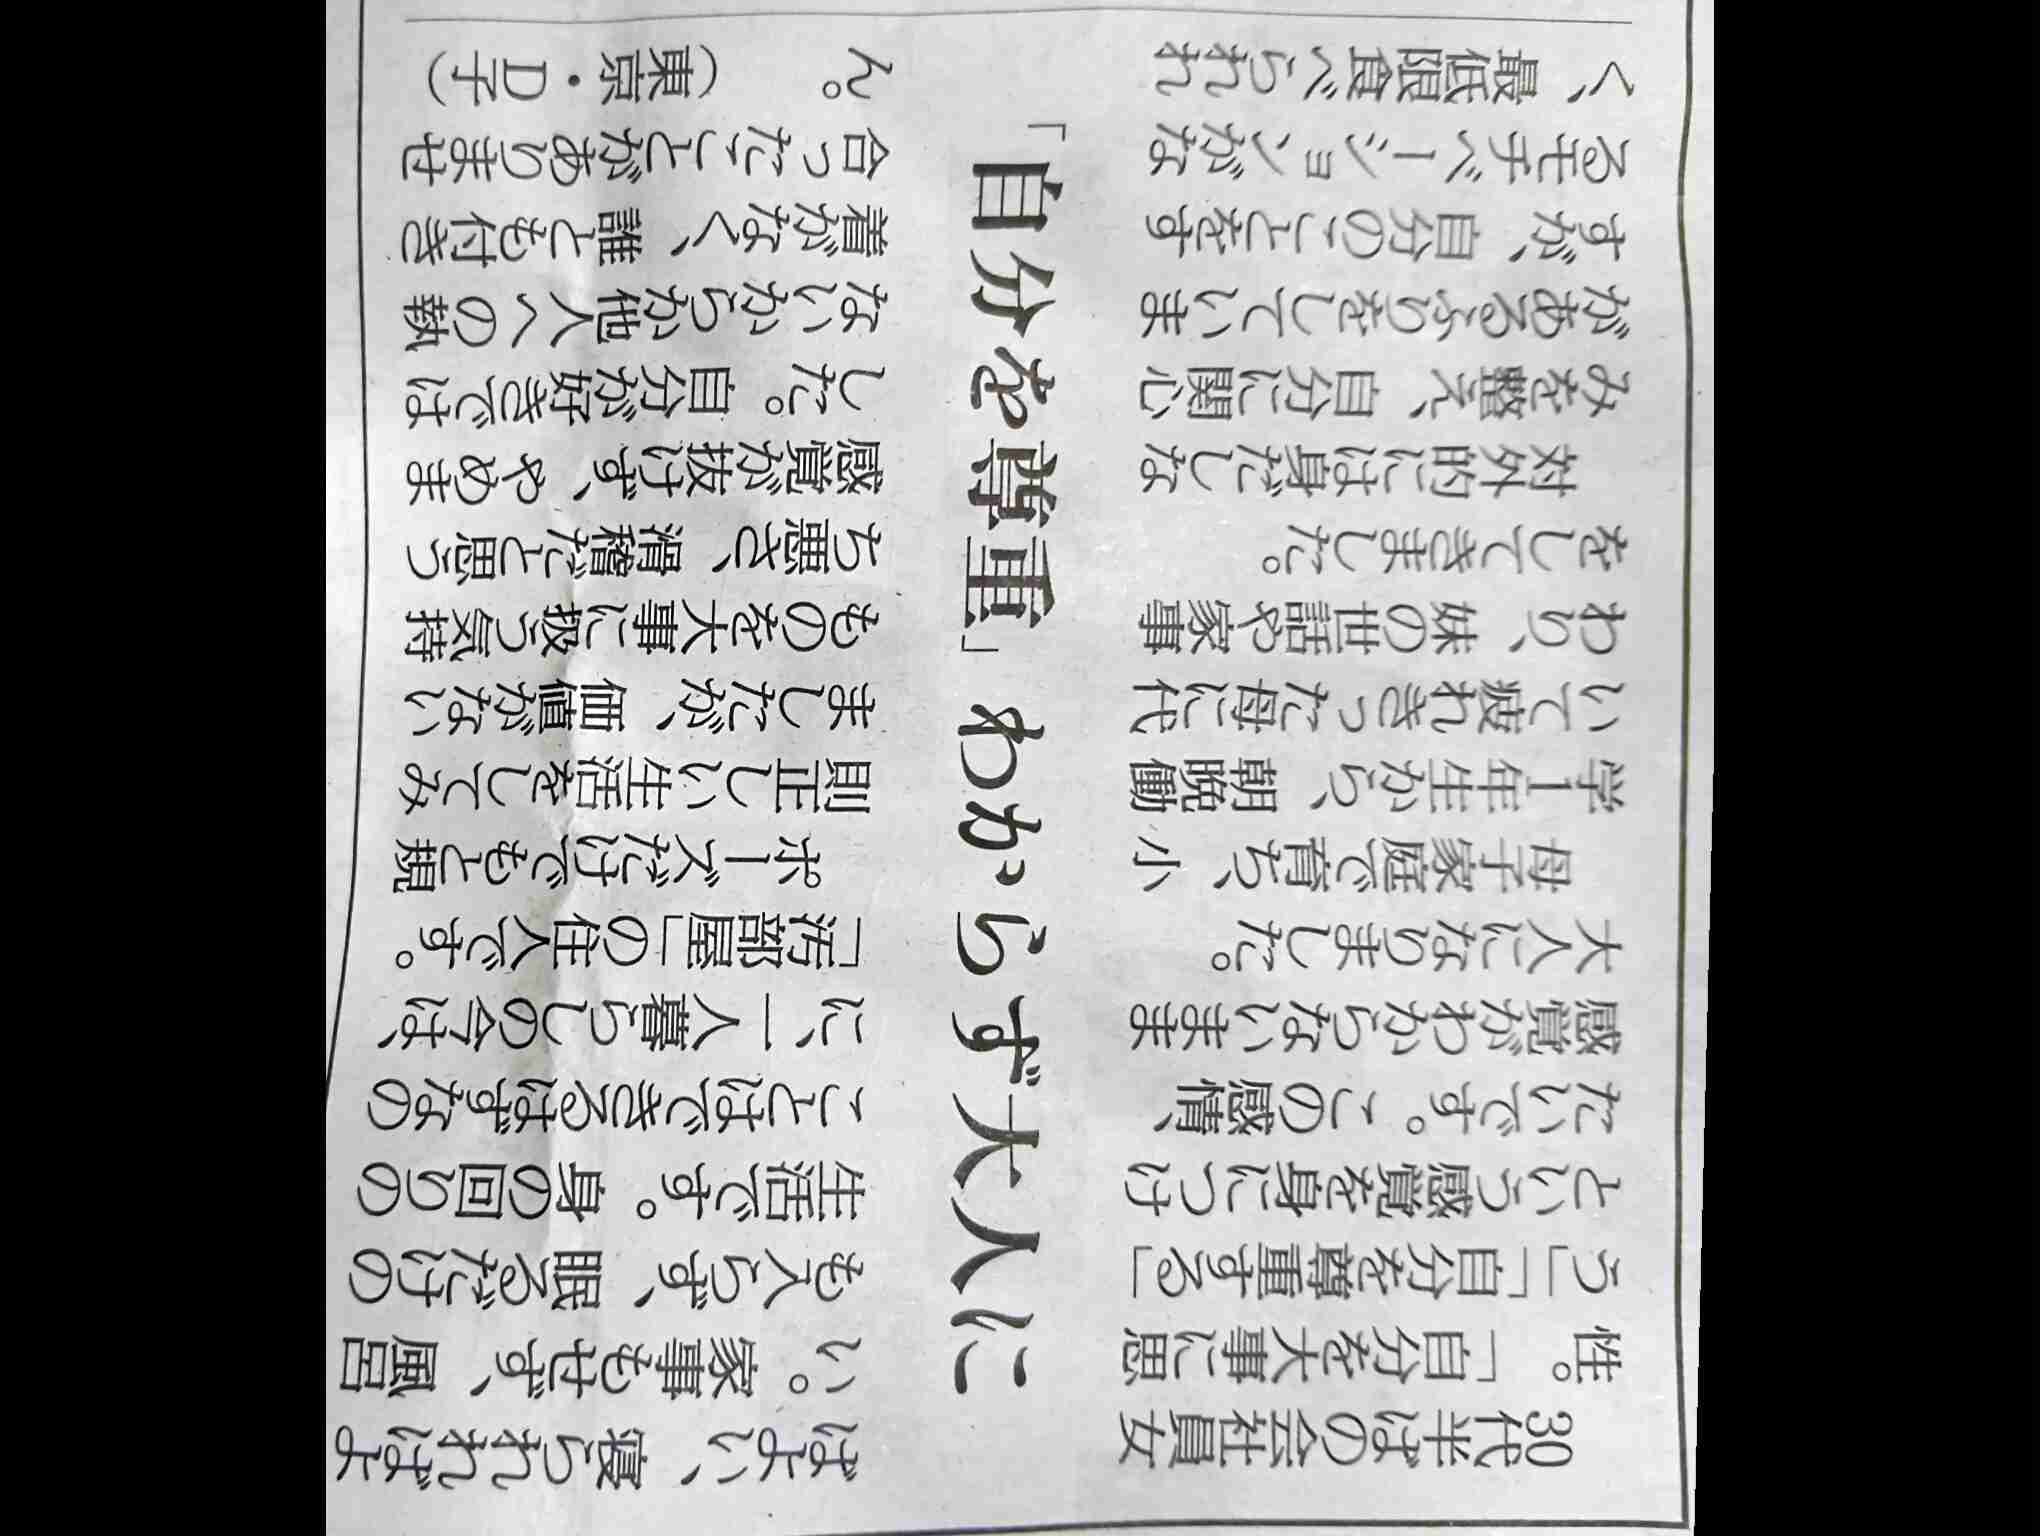 「自分を尊重」わからず大人に
30代半ばの会社員女
性。「自分を大事に思
う」「自分を尊重する」
という感覚を身につけ
たいです。この感情、
感覚がわからないまま
大人になりました。
母子家庭で育ち、小
学1年生から、朝晩働
いて疲れきった母に代
わり、妹の世話や家事
をしてきました。
対外的には身だしな
みを整え、自分に関心
があるふりをしていま
すが、自分のことをす
るモチベーションがな
く、最低限食べられれ
ばよい、寝られればよ
い。家事もせず、風呂
も入らず、眠るだけの
生活です。身の回りの
ことはできるはずなの
に、一人暮らしの今は、
「汚部屋」の住人です。
ポーズだけでもと規
則正しい生活をしてみ
ましたが、価値がない
ものを大事に扱う気持
ち悪さ、滑稽だと思う
感覚が抜けず、やめま
した。自分が好きでは
ないからか他人への執
着がなく、誰とも付き
合ったことがありませ
ん。（東京・D子）